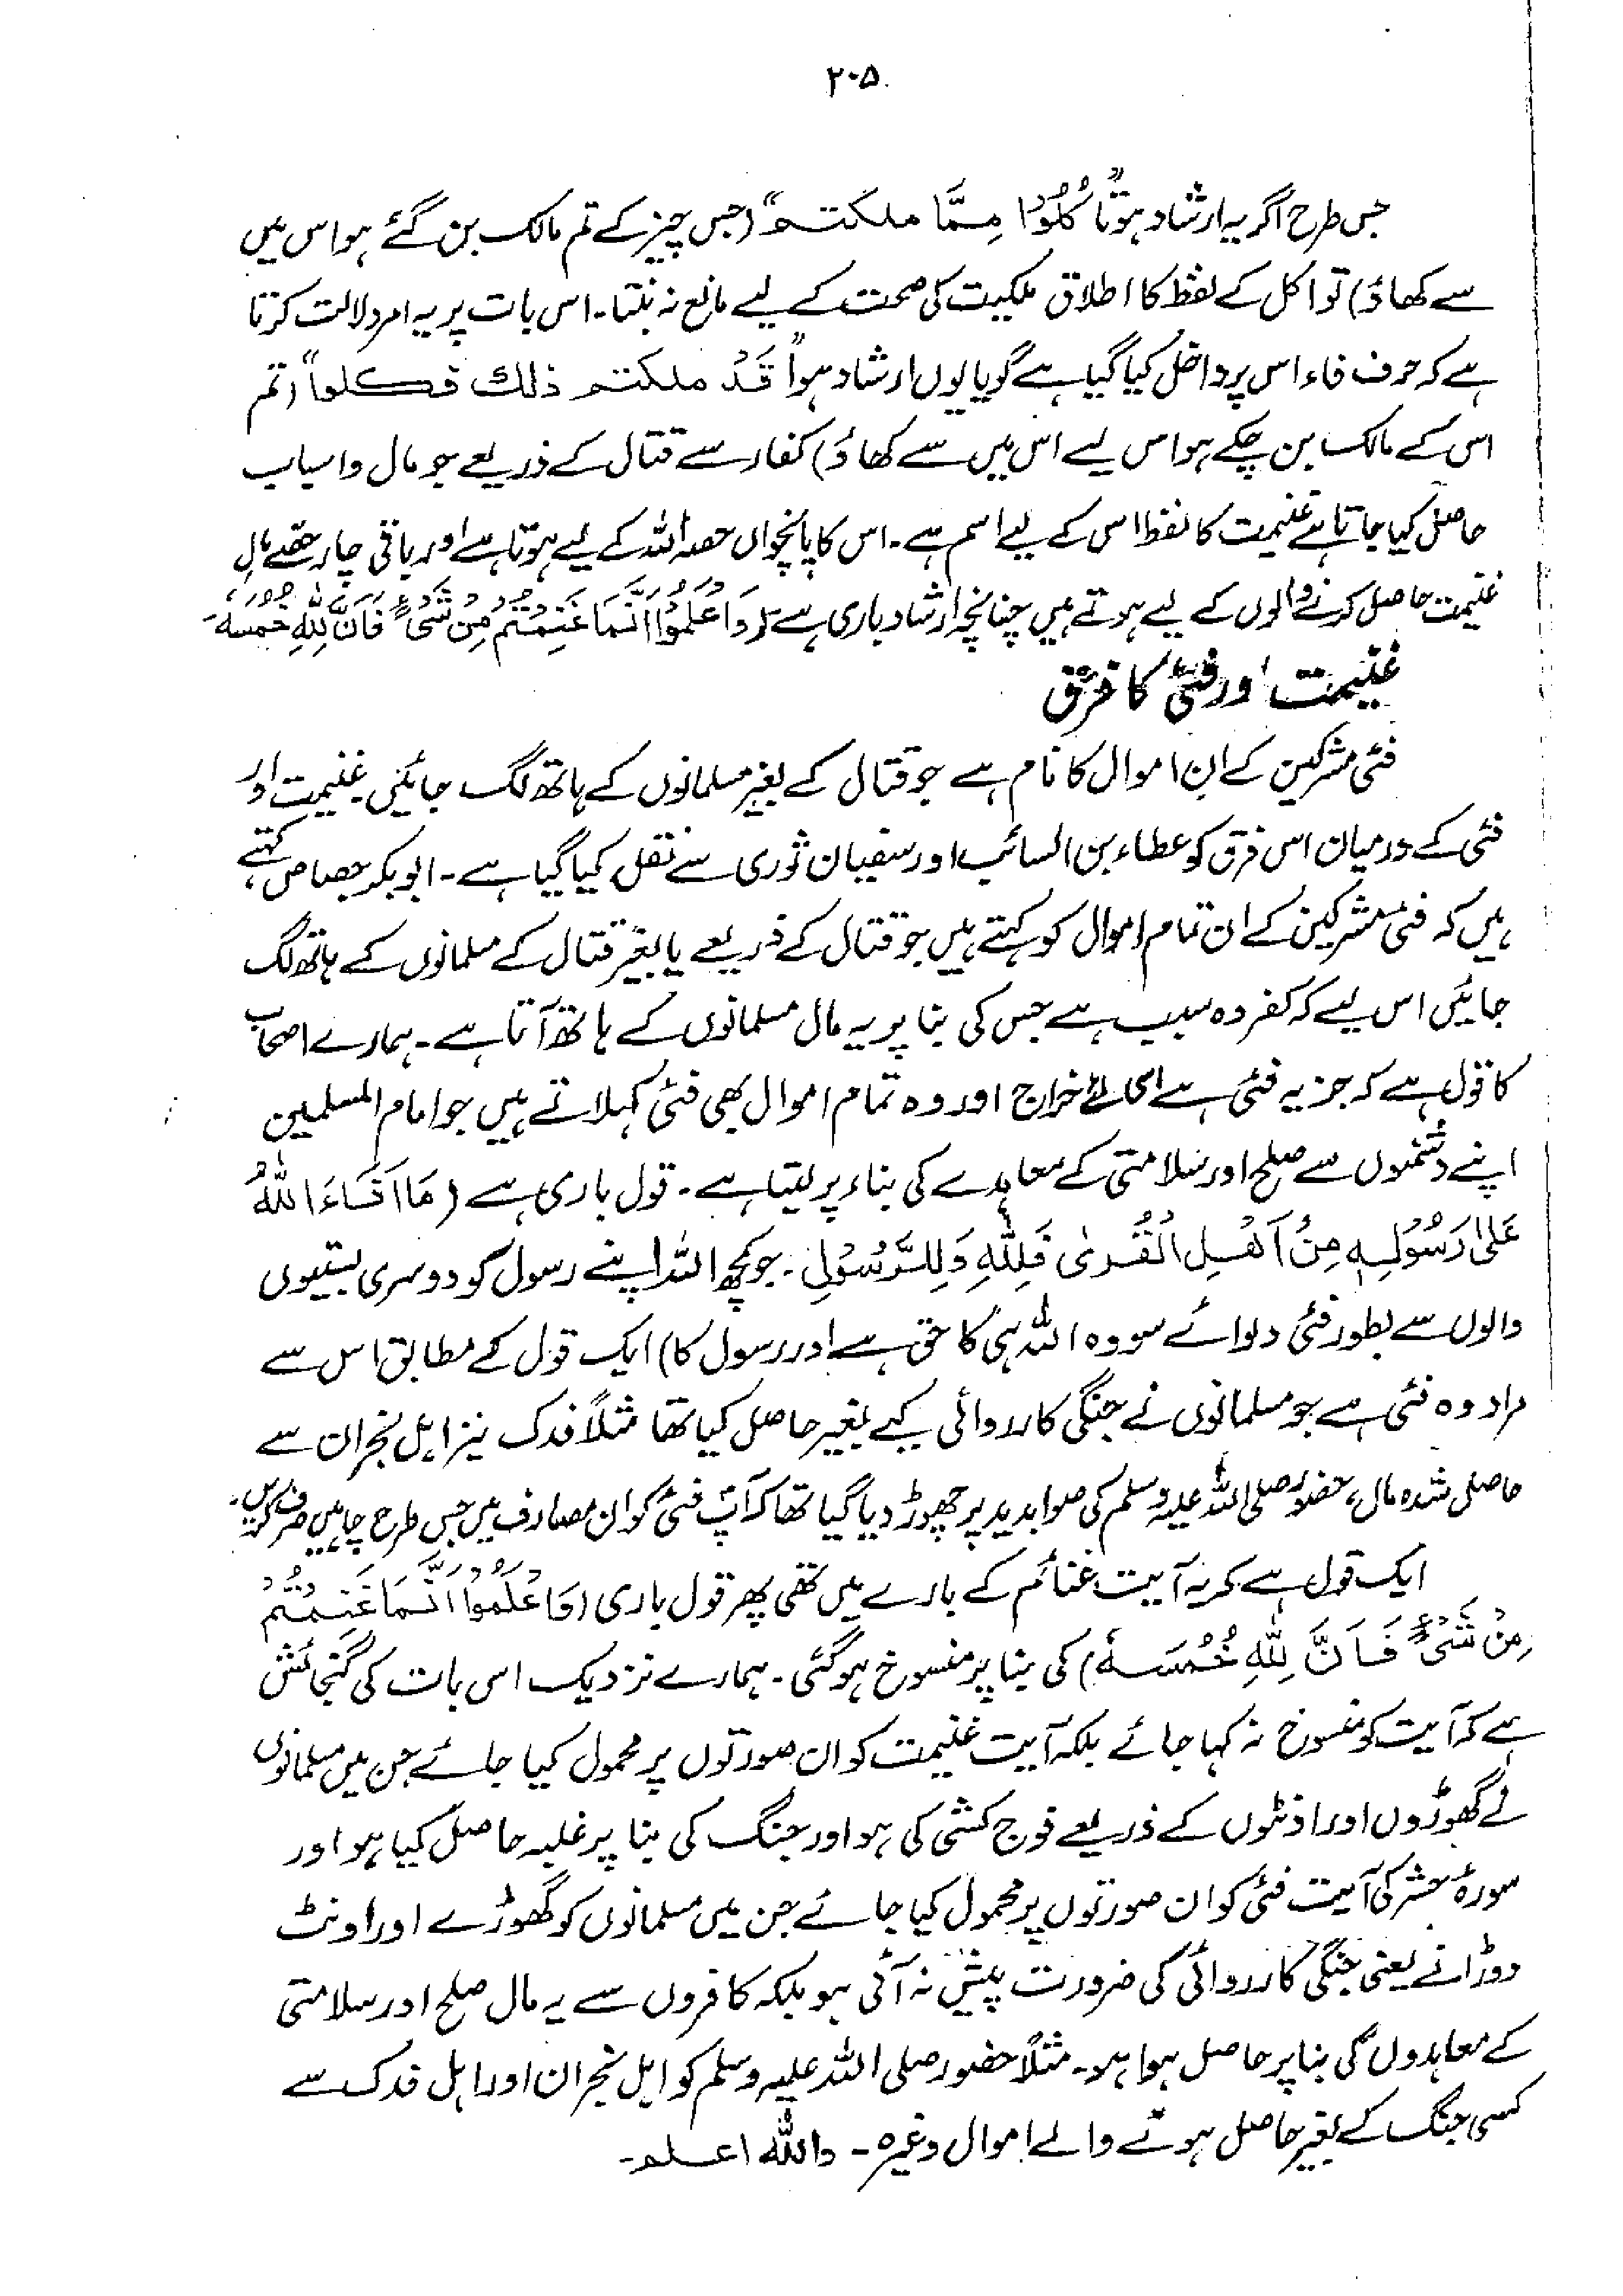 ۲۰۵
جس طرح اگر یہ ارشاد ہوتا "کُلُوْا مِمَّا ملکتم" (جس چیز کے تم مالک بن گئے ہو اس میں
سے کھاؤ) تو اکل کے لفظ کا اطلاق ملکیت کی صحت کے لیے مانع نہ بنتا۔ اس بات پر یہ امر دلالت کرتا
ہے کہ حرف فاء اس پر داخل کیا گیا ہے گویا یوں ارشاد ہوا "قَدْ ملکتم ذلك فکلوا" (تم
اس کے مالک بن چکے ہو اس لیے اس میں سے کھاؤ) کفار سے قتال کے ذریعے جو مال و اسباب
حاصل کیا جاتا ہے غنیمت کا لفظ اس کے لیے اسم ہے۔ اس کا پانچواں حصہ اللہ کے لیے ہوتا ہے اور باقی چار حصے مالِ
غنیمت حاصل کرنے والوں کے لیے ہوتے ہیں چنانچہ ارشاد باری ہے (وَاعْلَمُوْا اَنَّمَا غَنِمْتُمْ مِنْ شَیْءٍ فَاَنَّ لِلّٰہِ خُمُسَهٗ
غنیمت اور فئی کا فرق
فئی مشرکین کے ان اموال کا نام ہے جو قتال کے بغیر مسلمانوں کے ہاتھ لگ جائیں۔ غنیمت اور
فئی کے درمیان اس فرق کو عطاء بن السائب اور سفیان ثوری سے نقل کیا گیا ہے۔ ابوبکر جصاص کہتے
ہیں کہ فئی مشرکین کے ان تمام اموال کو کہتے ہیں جو قتال کے ذریعے یا بغیر قتال کے مسلمانوں کے ہاتھ لگ
جائیں اس لیے کہ کفر وہ سبب ہے جس کی بنا پر یہ مال مسلمانوں کے ہاتھ آتا ہے۔ ہمارے اصحاب
کا قول ہے کہ جزیہ فئی ہے اسی لئے خراج اور وہ تمام اموال بھی فئی کہلاتے ہیں جو امام المسلمین
اپنے دشمنوں سے صلح اور سلامتی کے معاہدے کی بناء پر لیتا ہے۔ قول باری ہے (مَا اَفَاءَ اللّٰہُ
عَلٰی رَسُوْلِہٖ مِنْ اَھْلِ الْقُرٰی فَلِلّٰہِ وَلِلرَّسُوْلِ۔ جو کچھ اللہ اپنے رسول کو دوسری بستیوں
والوں سے بطور فئی دلوائے سو وہ اللہ ہی کا حق ہے اور رسول کا) ایک قول کے مطابق اس سے
مراد وہ فئی ہے جو مسلمانوں نے جنگی کارروائی کیے بغیر حاصل کیا تھا مثلاً فدک نیز اہل نجران سے
حاصل شدہ مال، حضور صلی اللہ علیہ وسلم کی صوابدید پر چھوڑ دیا گیا تھا کہ آپ فئی کو ان مصارف میں جس طرح چاہیں صرف کریں۔
ایک قول ہے کہ یہ آیت غنائم کے بارے میں تھی پھر قول باری (وَاعْلَمُوْا اَنَّمَا غَنِمْتُمْ
مِنْ شَیْءٍ فَاَنَّ لِلّٰہِ خُمُسَهٗ) کی بنا پر منسوخ ہوگئی۔ ہمارے نزدیک اس بات کی گنجائش
ہے کہ آیت کو منسوخ نہ کہا جائے بلکہ آیت غنیمت کو ان صورتوں پر محمول کیا جائے جن میں مسلمانوں
نے گھوڑوں اور اونٹوں کے ذریعے فوج کشی کی ہو اور جنگ کی بنا پر غلبہ حاصل کیا ہو اور
سورۂ حشر کی آیت فئی کو ان صورتوں پر محمول کیا جائے جن میں مسلمانوں کو گھوڑے اور اونٹ
دوڑانے یعنی جنگی کارروائی کی ضرورت پیش نہ آئی ہو بلکہ کافروں سے یہ مال صلح اور سلامتی
کے معاہدوں کی بنا پر حاصل ہوا ہو۔ مثلاً حضور صلی اللہ علیہ وسلم کو اہل نجران اور اہل فدک سے
کسی جنگ کے بغیر حاصل ہونے والے اموال وغیرہ۔ واللہ اعلم۔